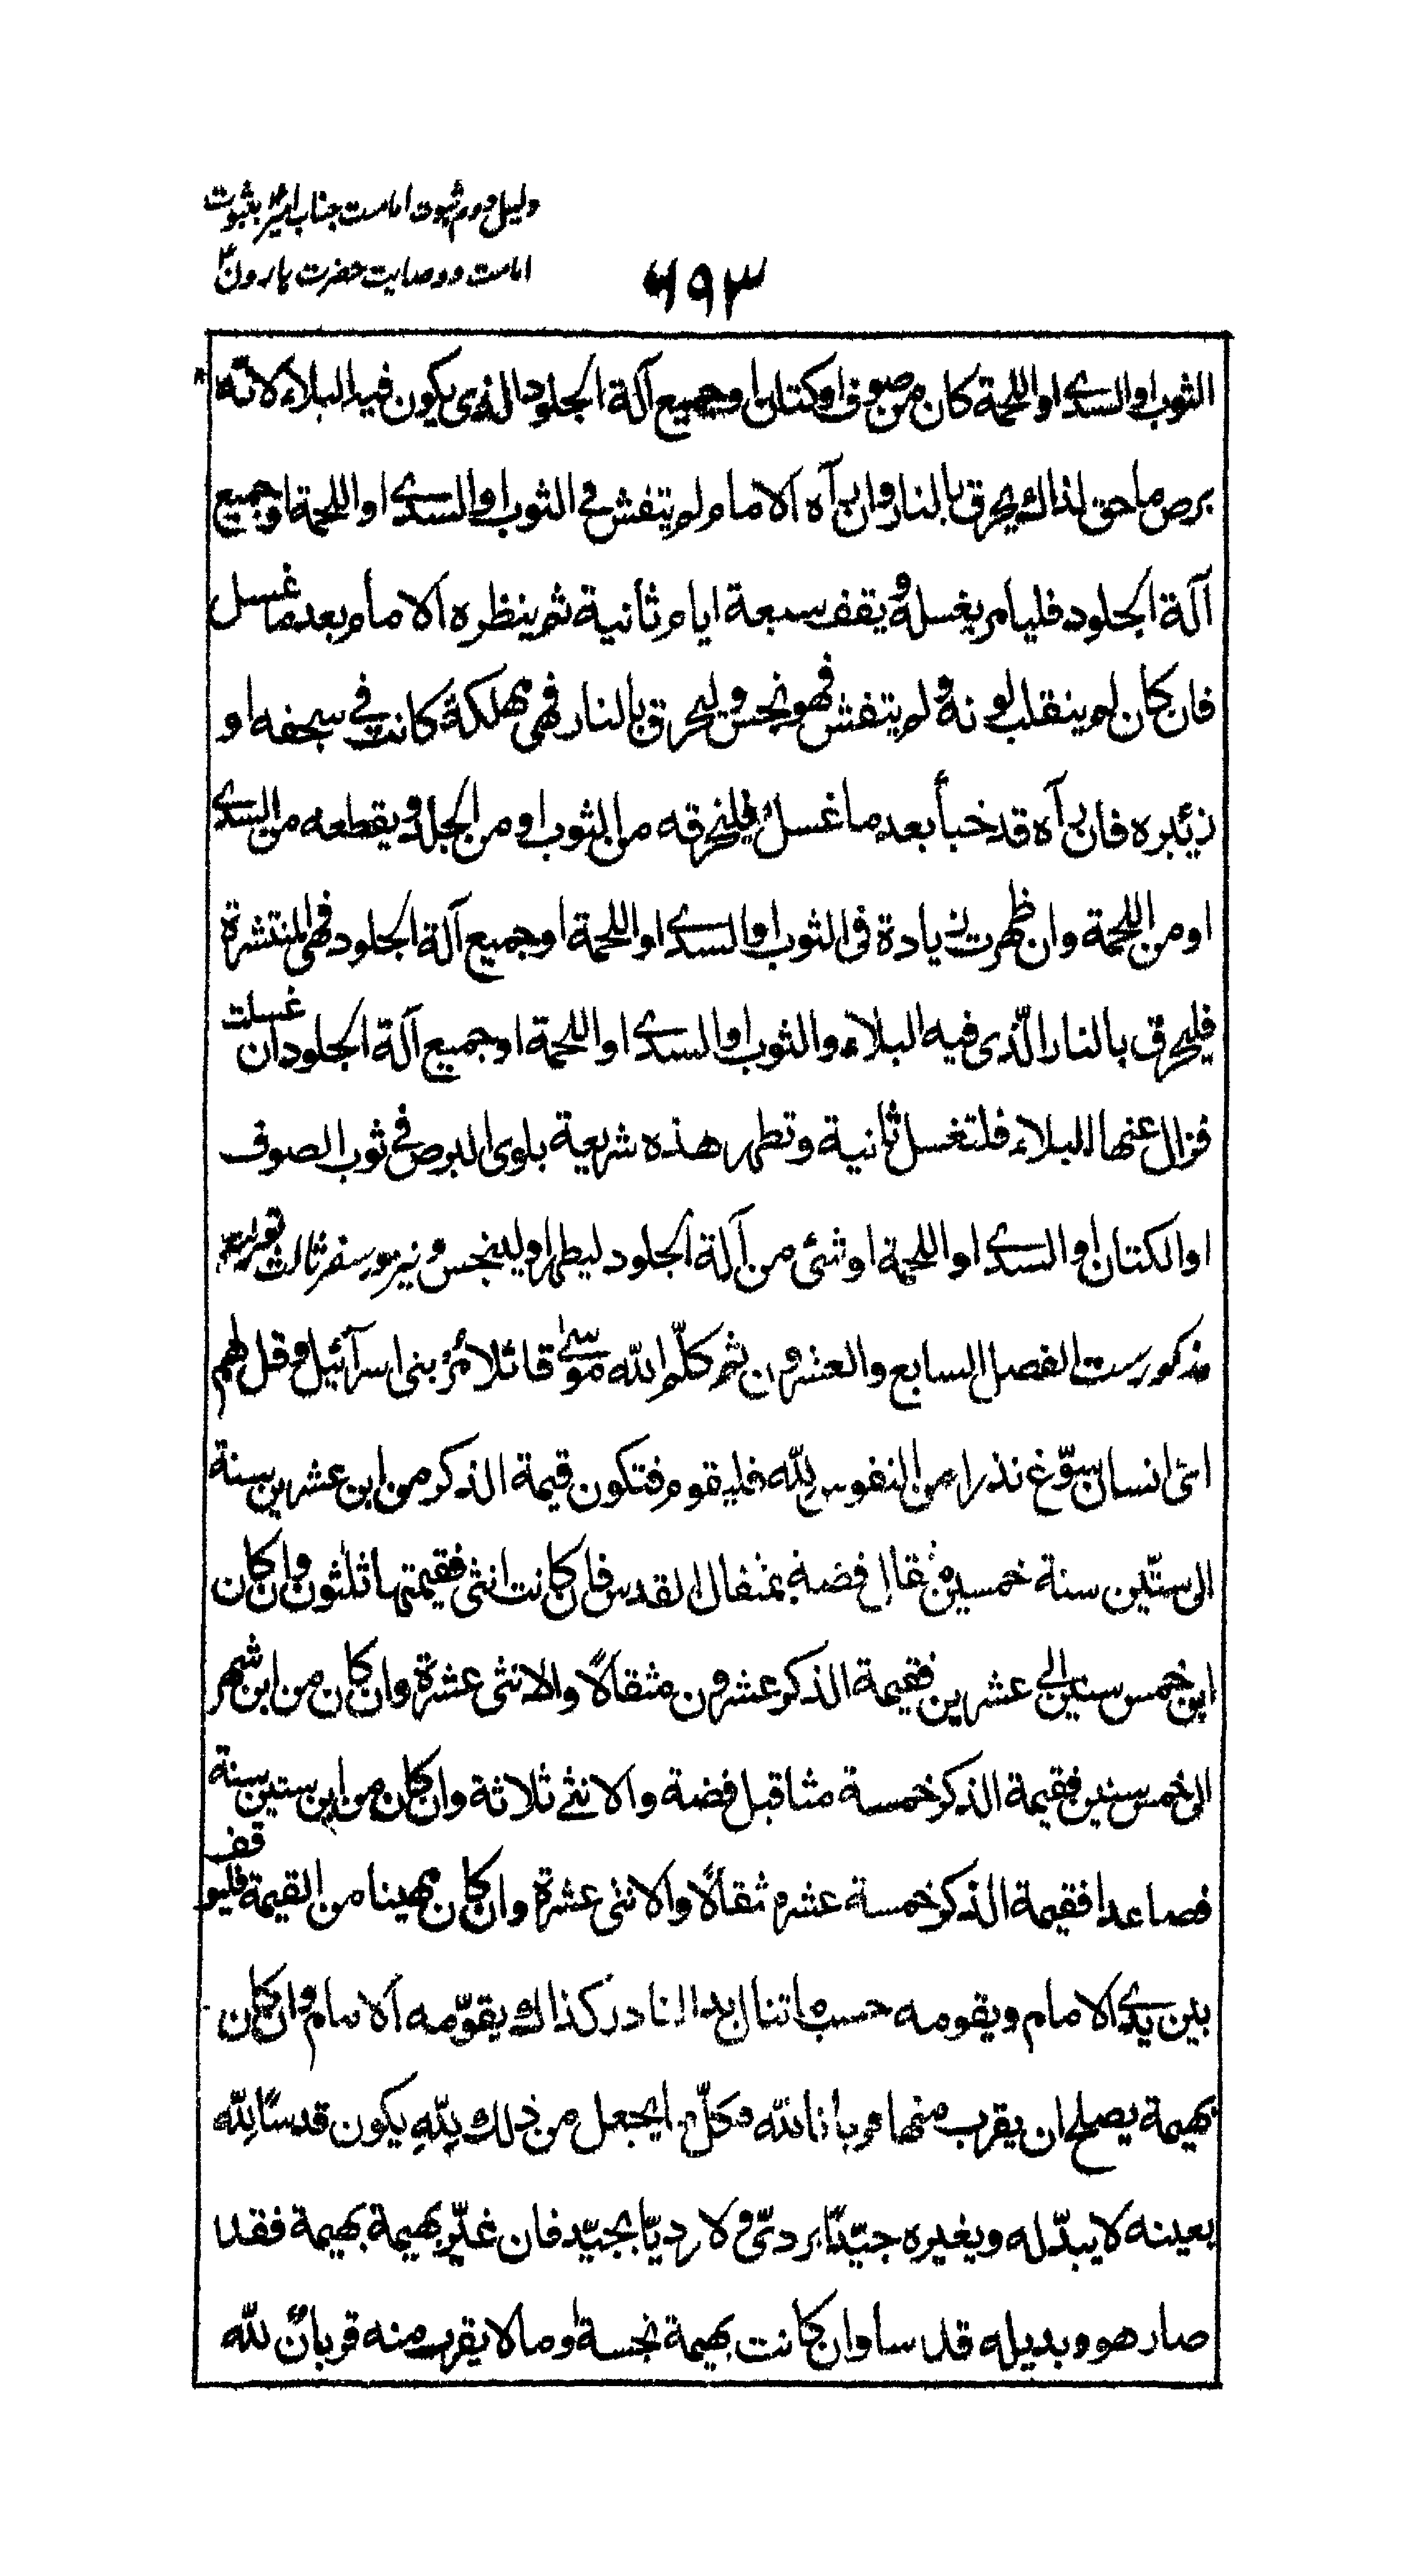 دلیل دوم ثبوت امامت جناب امیرؑ بثبوت
امامت ووصایت حضرت ہارونؑ
۶۹۳
الثوب او السدى او اللحمة كان من صوف او كتان او جميع آلة الجلود الذى يكون فيه البلاء لانّه
برص ماحق لذلك يحرق بالنار وان رآه الامام لم يتفش فى الثوب او السدى او اللحمة او جميع
آلة الجلود فليامر يغسله ويقف سبعة ايام ثانية ثم ينظره الامام بعد ما غسل
فان كان لم ينقلب لونه ولم يتفش فهو نجس وليحرق بالنار فهى مهلكة كانت فى سحفه او
زئبره فان رآه قد خبأ بعد ما غسل فليخرقه من الثوب او من الجلد ويقطعه من السدى
او من اللحمة وان ظهرت زيادة فى الثوب او السدى او اللحمة او جميع آلة الجلود فهى المنتشرة
فليحرق بالنار الّذى فيه البلاء والثوب او السدى او اللحمة او جميع آلة الجلود ان غسلت
فزال عنها البلاء فلتغسل ثانية وتطهر هذه شريعة بلوى البرص فى ثوب الصوف
او الكتان او السدى او اللحمة او شئ من آلة الجلود ليطهر او لينجس ونیز در سفر ثالث توریت
مذکورست الفصل السابع والعشرون ثم كلّم الله موسىٰ قائلا مُرْ بنى اسرآئيل وقل لهم
اىّ انسان سوّغ نذرا من النفوس لِلّه فليقوم فتكون قيمة الذكر من ابن عشرين سنة
الى ستّين سنة خمسين مثقال فضة بمثقال القدس فان كانت انثى فقيمتها ثلٰثون وان كان
ابن خمس سنين الى عشرين فقيمة الذكر عشرون مثقالًا والانثى عشرة وان كان من ابن شهر
الى خمس سنين فقيمة الذكر خمسة مثاقيل فضة والانثى ثلاثة وان كان من ابن ستين سنة
فصاعدا فقيمة الذكر خمسة عشر مثقالًا والانثى عشرة وان كان مهينا من القيمة فليوقف
بين يدى الامام ويقومه حسب ما تنال يد الناذر كذلك يقوّمه الامام وان كان
بهيمة يصلح ان يقرب منها قربانا لله وكلّ ما يجعل من ذلك لِلّهِ يكون قدسًا لِلّه
بعينه لا يبدّله ويغيره جيّدًا بردىّ ولا رديّا بجيّد فان غيّر بهيمة بهيمة فقد
صار هو وبديله قدسا وان كانت بهيمة نجسة او ما لا يقرب منه قربانٌ لله